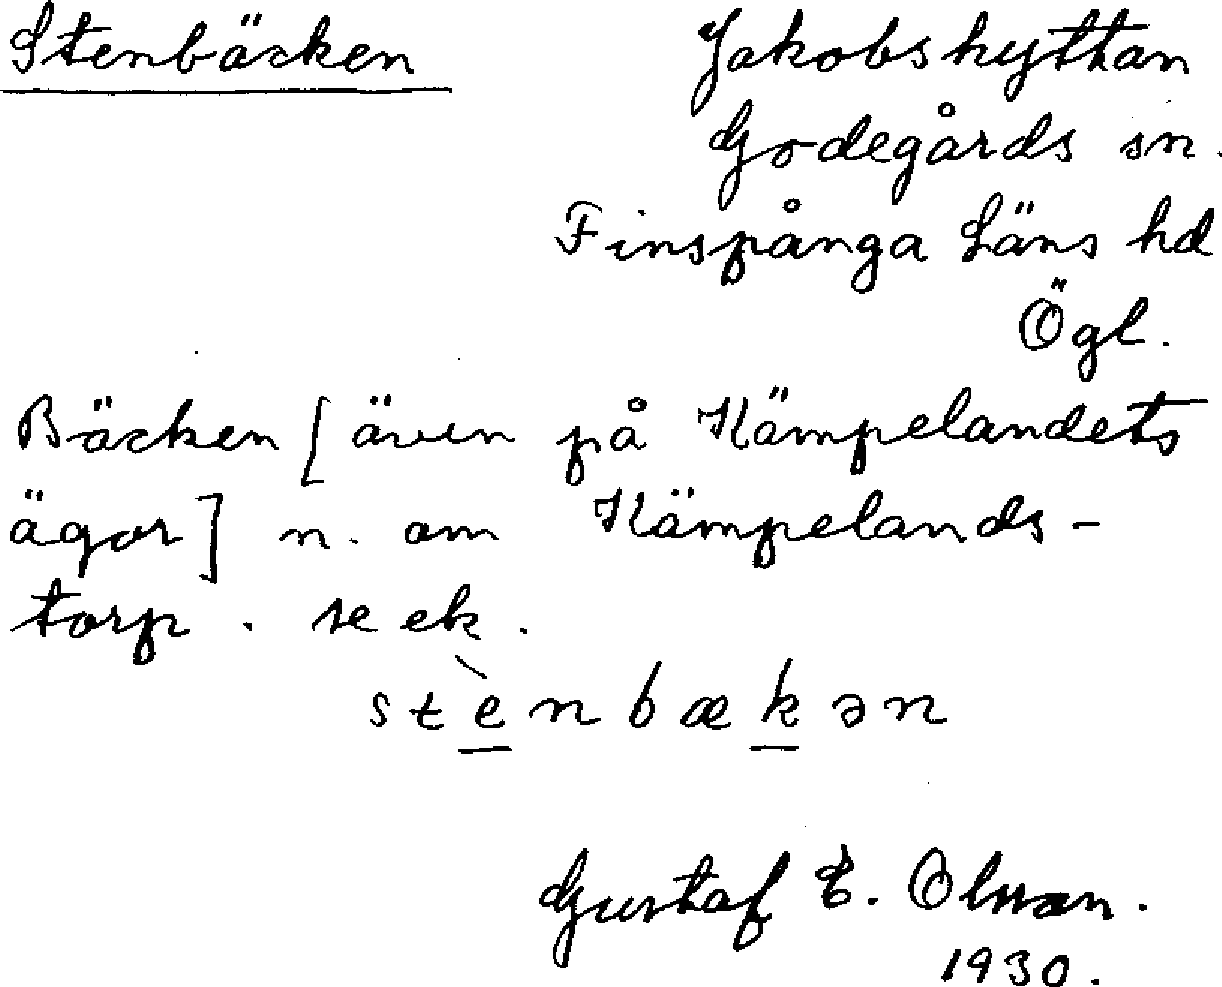 Stenbäcken
Jakobshyttan
Godegårds sn.
Finspånga Läns hd
Ögl.
Bäcken [även på Kämpelandets
ägor] n. om Kämpelands-
torp. se ek.
stènbækən
Gustaf E. Olsson.
1930.